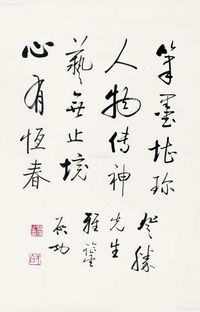 笔墨堪珍
人物传神
艺无止境
心有恒春
登胜
先生
雅鉴
启功